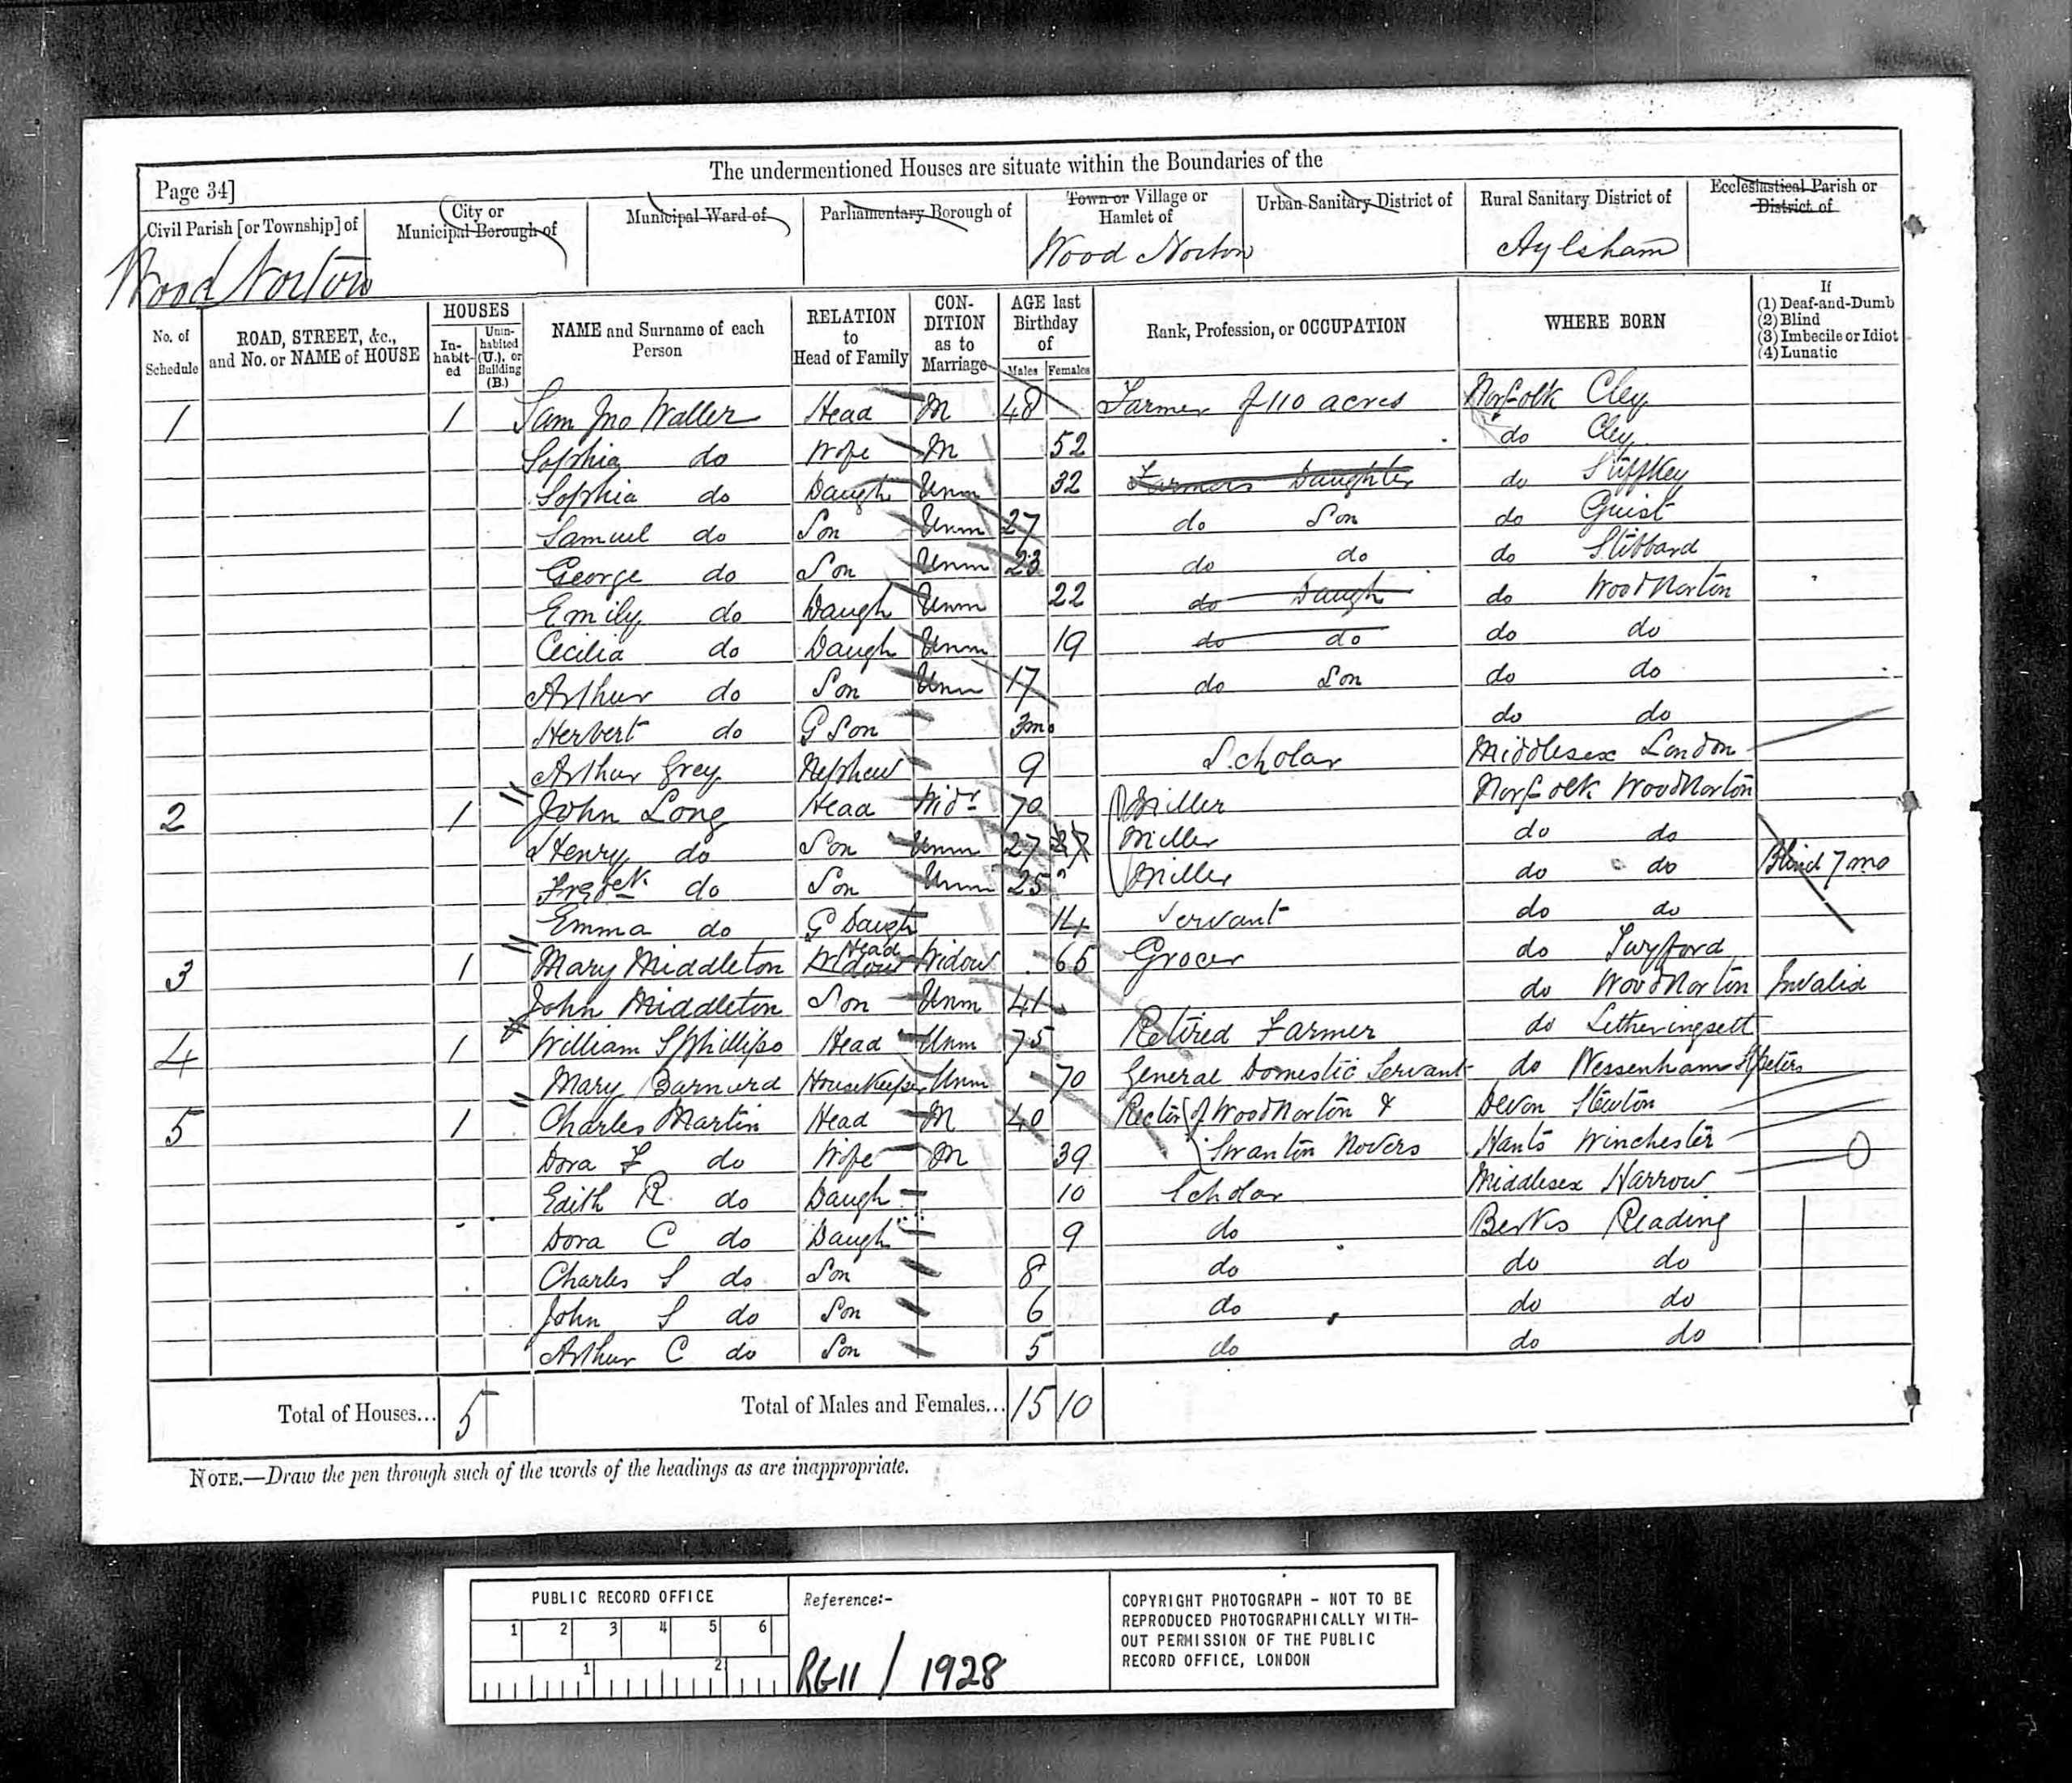 The undermentioned Houses are situate within the Boundaries of the
Page 34]
Civil Parish [or Township] of
City or Municipal Borough of
Municipal Ward of
Parliamentary Borough of
Town or Village or Hamlet of
Urban Sanitary District of
Rural Sanitary District of
Ecclesiastical Parish or District of
Wood Norton
Wood Norton
Aylsham
No. of Schedule
ROAD, STREET, &c., and No. or NAME of HOUSE
HOUSES
In-habit-ed
Unin-habited (U.), or Building (B.)
NAME and Surname of each Person
RELATION to Head of Family
CON-DITION as to Marriage
AGE last Birthday of
Males
Females
Rank, Profession, or OCCUPATION
WHERE BORN
If
(1) Deaf-and-Dumb
(2) Blind
(3) Imbecile or Idiot
(4) Lunatic
1 1 Sam Jno Waller Head M 48 Farmer of 110 acres Norfolk Cley
Sophia do Wife M 52 do Cley
Sophia do Daugh Unm 32 Farmers Daughter do Stiffkey
Samuel do Son Unm 27 do Son do Guist
George do Son Unm 23 do do do Stibbard
Emily do Daugh Unm 22 do Daugh do Wood Norton
Cecilia do Daugh Unm 19 do do do do
Arthur do Son Unm 17 do Son do do
Herbert do G Son 3mo do do
Arthur Grey Nephew 9 Scholar Middlesex London
2 1 John Long Head Widr 70 Miller Norfolk Wood Norton
Henry do Son Unm 27 27 Miller do do
Fredek do Son Unm 25 Miller do do Blind 7 mo
Emma do G Daugh 14 Servant do do
3 1 Mary Middleton Widow Head Widow 65 Grocer do Twyford
John Middleton Son Unm 41 do Wood Norton Invalid
4 1 William S Phillipo Head Unm 75 Retired Farmer do Letheringsett
Mary Barnard Housekeeper Unm 70 General Domestic Servant do Wessenham St Peters
5 1 Charles Martin Head M 40 Rector of Wood Norton & Devon
Dora F do Wife M 39 Swanton Novers Hants Winchester
Edith R do Daugh 10 Scholar Middlesex Harrow
Dora C do Daugh 9 do Berks Reading
Charles S do Son 8 do do do
John S do Son 6 do do do
Arthur C do Son 5 do do do
Total of Houses... 5 Total of Males and Females... 15 10
NOTE.—Draw the pen through such of the words of the headings as are inappropriate.
PUBLIC RECORD OFFICE
1 2 3 4 5 6
1 2
Reference:-
RG11 / 1928
COPYRIGHT PHOTOGRAPH - NOT TO BE
REPRODUCED PHOTOGRAPHICALLY WITH-
OUT PERMISSION OF THE PUBLIC
RECORD OFFICE, LONDON